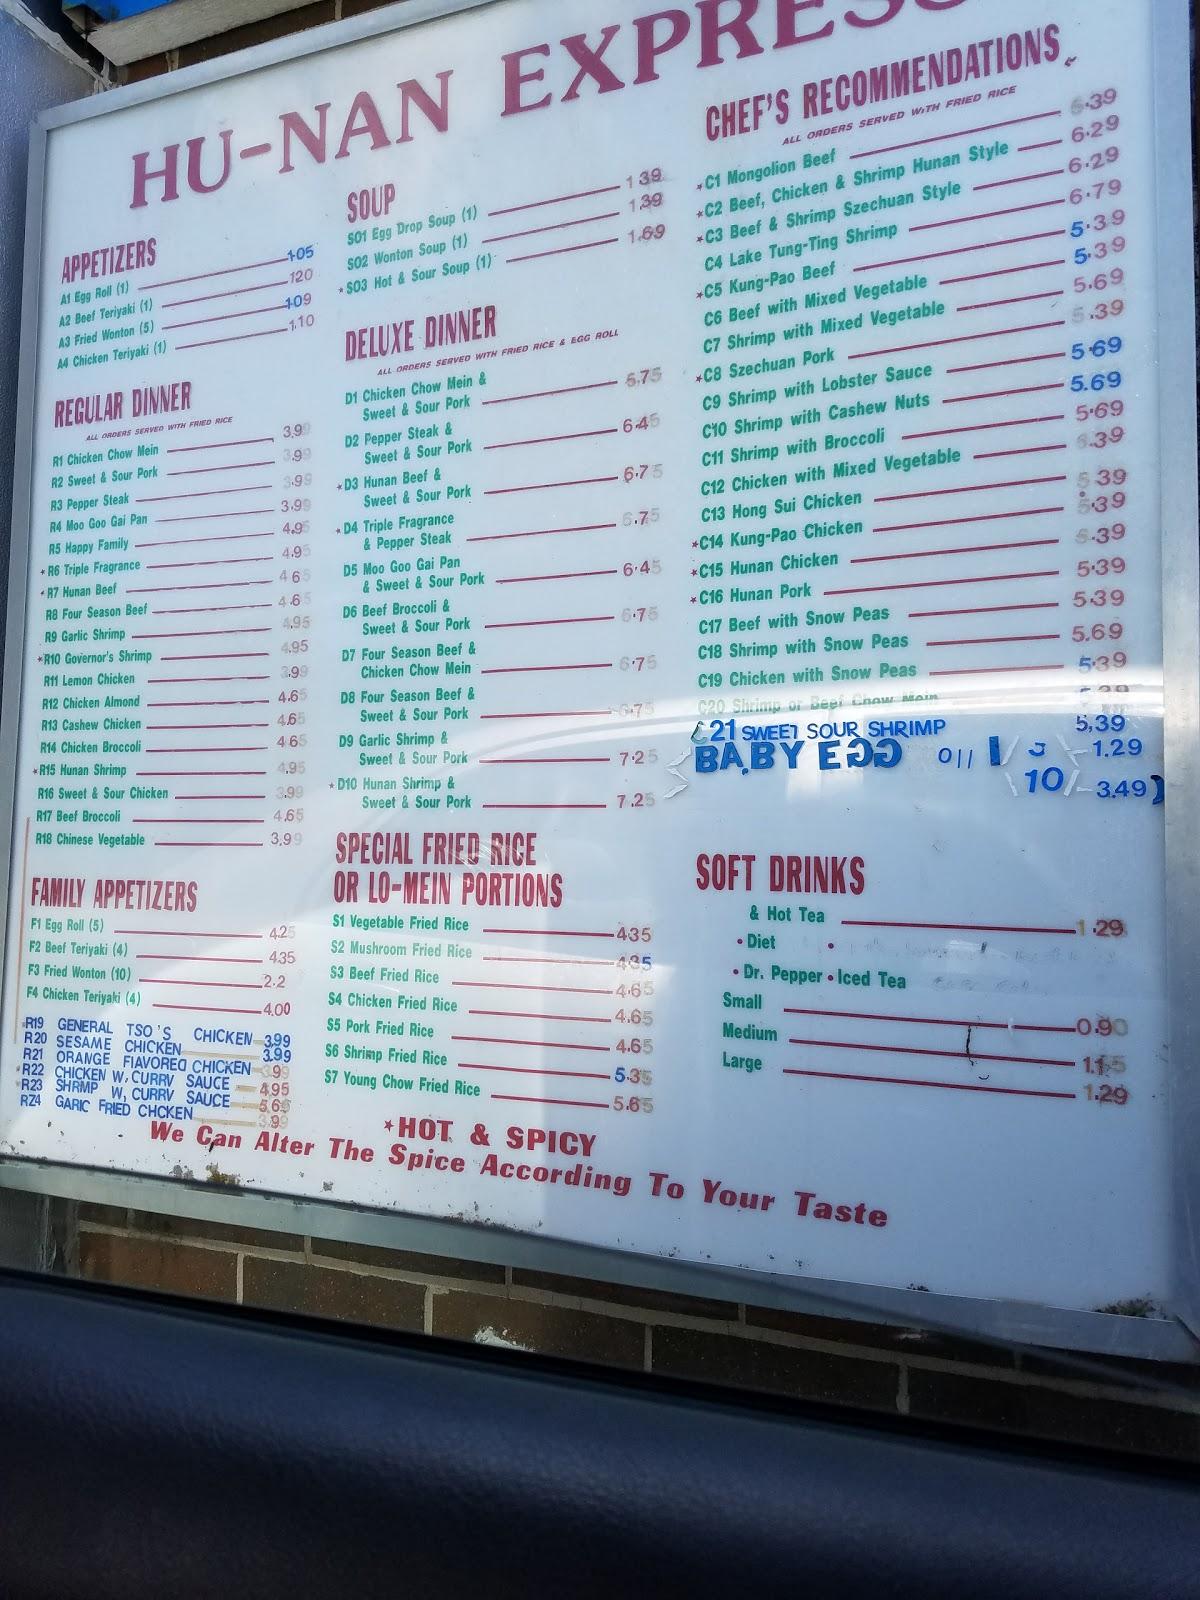 HU-NAN EXPRESS
APPETIZERS
A1 Egg Roll (1) 1.05
A2 Beef Teriyaki (1) 120
A3 Fried Wonton (5) 1.09
A4 Chicken Teriyaki (1) 1.10
REGULAR DINNER
ALL ORDERS SERVED WITH FRIED RICE
R1 Chicken Chow Mein 3.99
R2 Sweet & Sour Pork 3.99
R3 Pepper Steak 3.99
R4 Moo Goo Gai Pan 3.99
R5 Happy Family 4.95
*R6 Triple Fragrance 4.95
*R7 Hunan Beef 4.65
R8 Four Season Beef 4.65
R9 Garlic Shrimp 4.95
*R10 Governor's Shrimp 4.95
R11 Lemon Chicken 3.99
R12 Chicken Almond 4.65
R13 Cashew Chicken 4.65
R14 Chicken Broccoli 4.65
*R15 Hunan Shrimp 4.95
R16 Sweet & Sour Chicken 3.99
R17 Beef Broccoli 4.65
R18 Chinese Vegetable 3.99
FAMILY APPETIZERS
F1 Egg Roll (5) 4.25
F2 Beef Teriyaki (4) 4.35
F3 Fried Wonton (10) 2.2
F4 Chicken Teriyaki (4) 4.00
*R19 GENERAL TSO'S CHICKEN 3.99
R20 SESAME CHICKEN 3.99
R21 ORANGE FLAVORED CHICKEN 3.99
*R22 CHICKEN W. CURRV SAUCE 4.95
*R23 SHRMP W, CURRV SAUCE 5.65
RZ4 GARIC FRIED CHCKEN 3.99
SOUP
SO1 Egg Drop Soup (1) 1 39
SO2 Wonton Soup (1) 1.39
*SO3 Hot & Sour Soup (1) 1.69
DELUXE DINNER
ALL ORDERS SERVED WITH FRIED RICE & EGG ROLL
D1 Chicken Chow Mein &
Sweet & Sour Pork 6.75
D2 Pepper Steak &
Sweet & Sour Pork 6.45
*D3 Hunan Beef &
Sweet & Sour Pork 6.75
*D4 Triple Fragrance
& Pepper Steak 6.75
D5 Moo Goo Gai Pan
& Sweet & Sour Pork 6.45
D6 Beef Broccoli &
Sweet & Sour Pork 6.75
D7 Four Season Beef &
Chicken Chow Mein 6.75
D8 Four Season Beef &
Sweet & Sour Pork 6.75
D9 Garlic Shrimp &
Sweet & Sour Pork 7.25
*D10 Hunan Shrimp &
Sweet & Sour Pork 7.25
SPECIAL FRIED RICE
OR LO-MEIN PORTIONS
S1 Vegetable Fried Rice 4.35
S2 Mushroom Fried Rice 4.35
S3 Beef Fried Rice 4.65
S4 Chicken Fried Rice 4.65
S5 Pork Fried Rice 4.65
S6 Shrimp Fried Rice 5.35
S7 Young Chow Fried Rice 5.65
CHEF'S RECOMMENDATIONS
ALL ORDERS SERVED WITH FRIED RICE
*C1 Mongolion Beef 5.39
*C2 Beef, Chicken & Shrimp Hunan Style 6.29
*C3 Beef & Shrimp Szechuan Style 6.29
C4 Lake Tung-Ting Shrimp 6.79
*C5 Kung-Pao Beef 5.39
C6 Beef with Mixed Vegetable 5.39
C7 Shrimp with Mixed Vegetable 5.69
*C8 Szechuan Pork 5.39
C9 Shrimp with Lobster Sauce 5.69
C10 Shrimp with Cashew Nuts 5.69
C11 Shrimp with Broccoli 5.69
C12 Chicken with Mixed Vegetable 5.39
C13 Hong Sui Chicken 5.39
*C14 Kung-Pao Chicken 5.39
*C15 Hunan Chicken 5.39
*C16 Hunan Pork 5.39
C17 Beef with Snow Peas 5.39
C18 Shrimp with Snow Peas 5.69
C19 Chicken with Snow Peas 5.39
C20 Shrimp or Beef Chow Mein 5.39
C21 SWEET SOUR SHRIMP 5,39
BA,BY EGG 1.29
10 3.49
SOFT DRINKS
& Hot Tea 1.29
• Diet •
• Dr. Pepper • Iced Tea
Small 0.90
Medium 1.15
Large 1.29
*HOT & SPICY
We Can Alter The Spice According To Your Taste